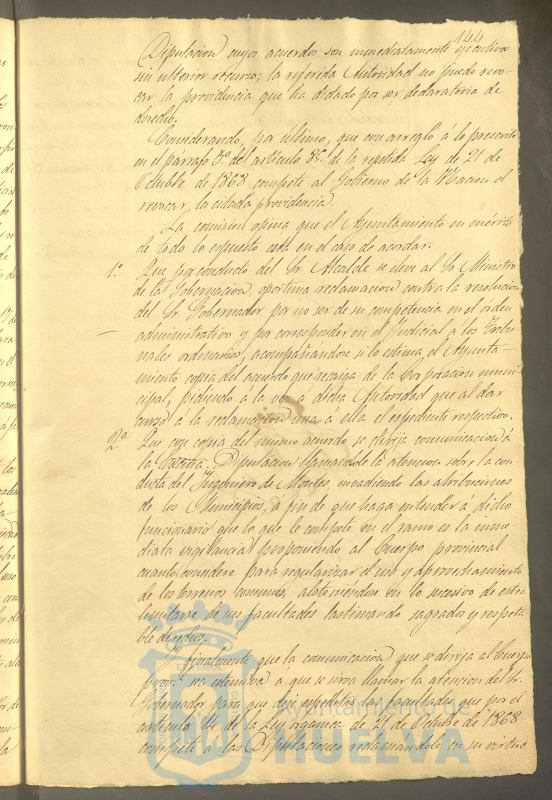 146
Diputacion cuyos acuerdos son inmediatamente ejecutivos
sin ulterior recurso; la referida Autoridad no puede revo-
car la providencia que ha dictado por ser declaratoria de
derecho.
Considerando, por último, que con arreglo á lo prescrito
en el parrafo 3º del articulo 8º de la repetida Ley de 21 de
Octubre de 1868 compete al Gobierno de la Nacion el
revocar la citada providencia.
La comision opina que el Ayuntamiento en mérito
de todo lo espuesto está en el caso de acordar.
1º Que por conducto del Sr Alcalde se eleve al Sr Ministro
de la Gobernacion oportuna reclamacion contra la resolucion
del Sr Gobernador por no ser de su competencia en el orden
administrativo y por corresponder en el Judicial a los Tribu-
nales ordinarios, acompañandose si lo estima el Ayunta-
miento copia del acuerdo que recaiga de la Corporacion muni-
cipal, pidiendo a la vez a dicha Autoridad que al dar
curso á la reclamacion una á ella el espediente respectivo.
2º Que con copia del mismo acuerdo se dirija comunicacion á
la Diputacion llamandole la atencion sobre la con-
ducta del Ingeniero de Montes, invadiendo las atribuciones
de los Municipios, a fin de que haga entender á dicho
funcionario que lo que le compete en el ramo es la inme-
diata vigilancia proponiendo al Cuerpo provincial
cuanto considere para regularizar el uso y aprovechamiento
de los terrenos comunes, absteniendose en lo sucesivo de estra-
limitarse de sus facultades lastimando sagrados y respeta-
bles derechos.
Y finalmente que la comunicacion que se dirija al Cuerpo
prov. sea estensiva a que se sirva llamar la atencion del Sr.
Gobernador para que deje espeditas las facultades que por el
articulo 14 de la Ley organica de 21 de Octubre de 1868
compete á las Diputaciones reclamandole en su virtud
Ayuntamiento de
HUELVA